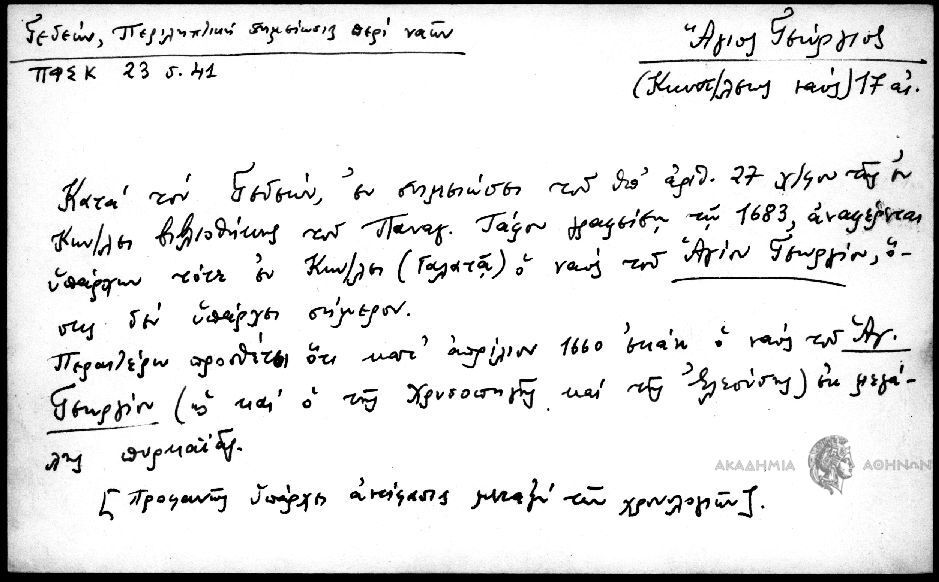 Γεδεών, Περιληπτική σημείωσις περί ναών
ΠΦΣΚ 23 σ. 41
Ἅγιος Γεώργιος
(Κωνστ/λεως ναός) 17 αἰ.
Κατά τόν Γεδεών, ἐν σημειώσει τοῦ ὑπ' ἀριθ. 27 χ/φου τῆς ἐν
Κων/λει βιβλιοθήκης τοῦ Παναγ. Τάφου γραφείσῃ τῷ 1683, ἀναφέρεται
ὑπάρχων τότε ἐν Κων/λει (Γαλατᾷ) ὁ ναός τοῦ Ἁγίου Γεωργίου, ὅ-
στις δέν ὑπάρχει σήμερον.
Περαιτέρω προσθέτει ὅτι κατ' ἀπρίλιον 1660 ἐκάη ὁ ναός τοῦ Ἁγ.
Γεωργίου (ὡς καί ὁ τῆς Χρυσοπηγῆς καί τῆς Ἐλεούσης) ἐκ μεγά-
λης πυρκαϊᾶς.
[Προφανῶς ὑπάρχει ἀντίφασις μεταξύ τῶν χρονολογιῶν].
ΑΚΑΔΗΜΙΑ ΑΘΗΝΩΝ